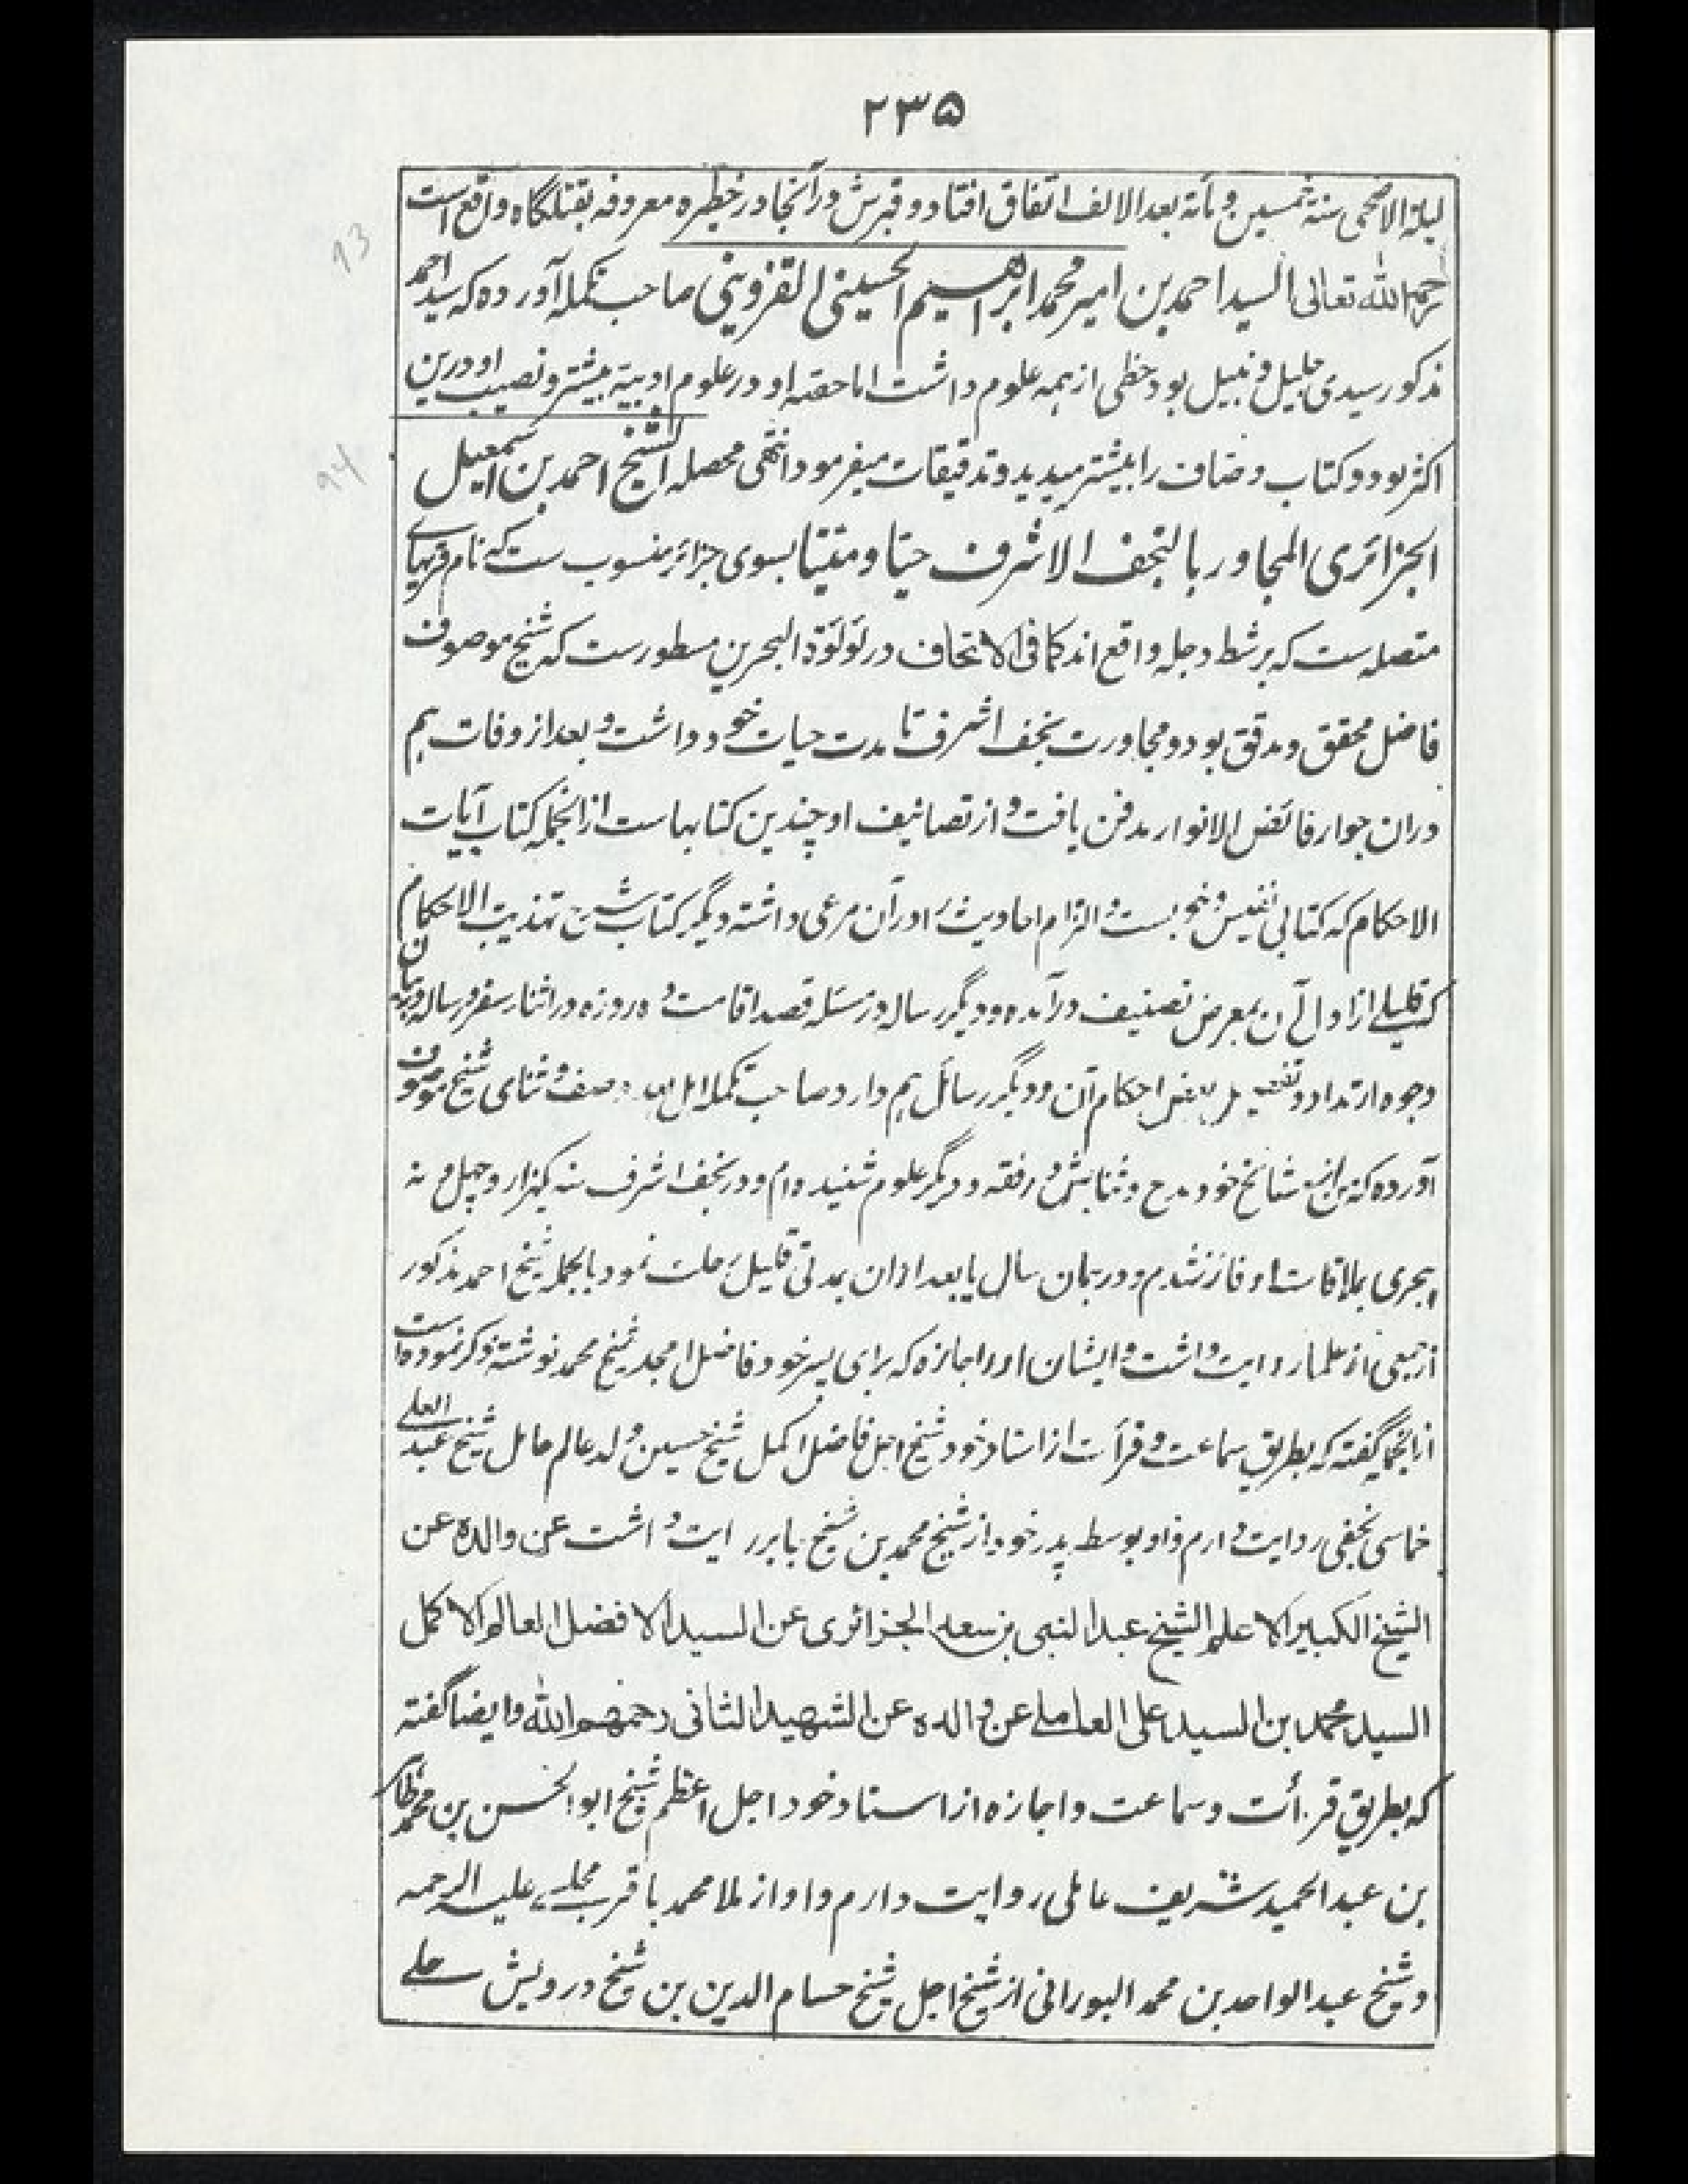 ۲۳۵
لیلة الاضحی سنة خمسین و مأتة بعد الالف اتفاق افتاد و قبرش در آنجا در خطیره معروفه بقتلگاه واقع است
93
رحمه الله تعالی السید احمد بن امیر محمد ابراهیم الحسینی القزوینی صاحب تکمله آورده که سید احمد
مذکور سیدی جلیل و نبیل بود حظی از همه علوم داشت اما حصّه او در علوم ادبیة بیشتر و نصیب او درین
94
اکثر بود و کتاب وضاف را بیشتر میدید و تدقیقات میفرمود انتهی محصله الشیخ احمد بن اسمعیل
الجزائری المجاور بالنجف الاشرف حیّا و میّتا بسوی جزائر منسوب ست که نام قریهای
متصله ست که بر شط دجله واقع اند کما فی الاتحاف در لؤلؤة البحرین مسطور ست که شیخ موصوف
فاضل محقق و مدقق بود و مجاورت نجف اشرف تا مدت حیات خود داشت و بعد از وفات هم
دران جوار فائض الانوار مدفن یافت و از تصانیف او چندین کتابهاست از انجمله کتاب آیات
الاحکام که کتابی نفیس و خوبست و التزام احادیث را در آن مرعی داشته دیگر کتاب شرح تهذیب الاحکام
که قلیلے از اول آن بمعرض تصنیف درآمده و دیگر رساله در مسئله قصد اقامت و روزه در اثنار سفر و رساله در بیان
وجوه ارتداد و تفصیل بعض احکام آن و دیگر رسائل هم دارد صاحب تکمله امل وصف و ثنای شیخ موصوف
آورده که من از مشائخ خود مدح و ثنایش در فقه و دیگر علوم شنیده ام و در نجف اشرف سنه یکهزار و چهل و نه
هجری بملاقات او فائز شدم و در همان سال یا بعد ازان بمدتی قلیل رحلت نمود بالجمله شیخ احمد مذکور
از جمعی از علمار روایت داشت و ایشان را در اجازه که برای پسر خود فاضل امجد شیخ محمد نوشته ذکر نموده است
از انجمله گفته که بطریق سماعت و قرأت از استاد خود شیخ اجل فاضل اکمل شیخ حسین ولد عالم عامل شیخ عبد العلے
خماسی نجفی روایت دارم و او بوسط پدر خود از شیخ محمد بن شیخ جابر روایت داشت عن والده عن
الشیخ الکبیر الاعلم الشیخ عبد النبی بن سعد الجزائری عن السید الافضل العالم الاکمل
السید محمد ابن السید علی العاملے عن والده عن الشهید الثانی رحمهم الله و ایضا گفته
که بطریق قرأت و سماعت و اجازه از استاد خود اجل اعظم شیخ ابو الحسن بن محمد طاهر
بن عبد الحمید شریف عاملی روایت دارم و او از ملا محمد باقر مجلسے علیه الرحمه
و شیخ عبد الواحد بن محمد البورانی از شیخ اجل شیخ حسام الدین بن شیخ درویش حلے